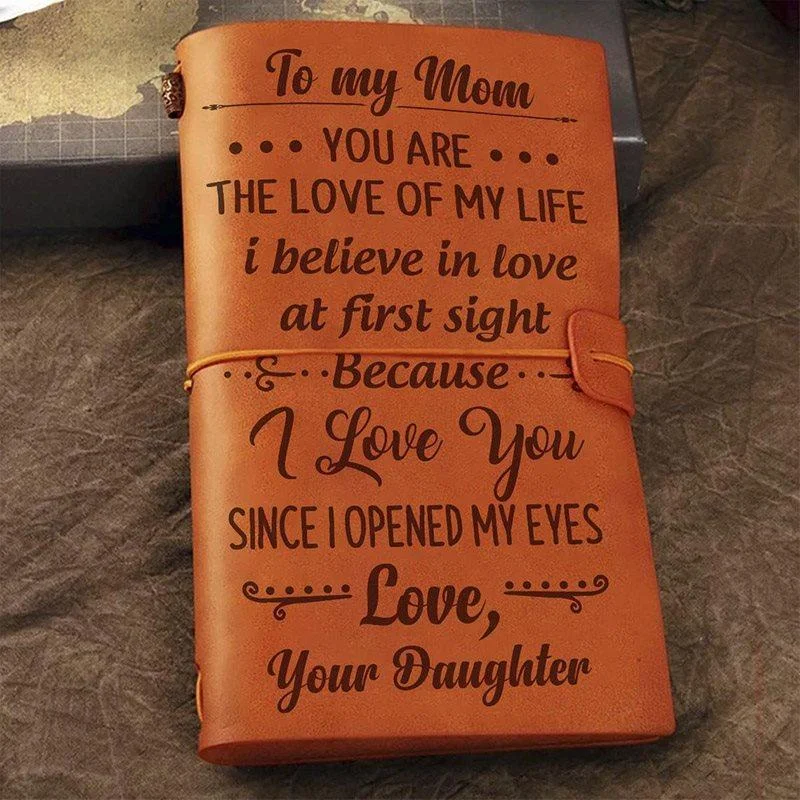 To my Mom
YOU ARE
THE LOVE OF MY LIFE
i believe in love
at first sight
Because
I Love You
SINCE I OPENED MY EYES
Love,
Your Daughter